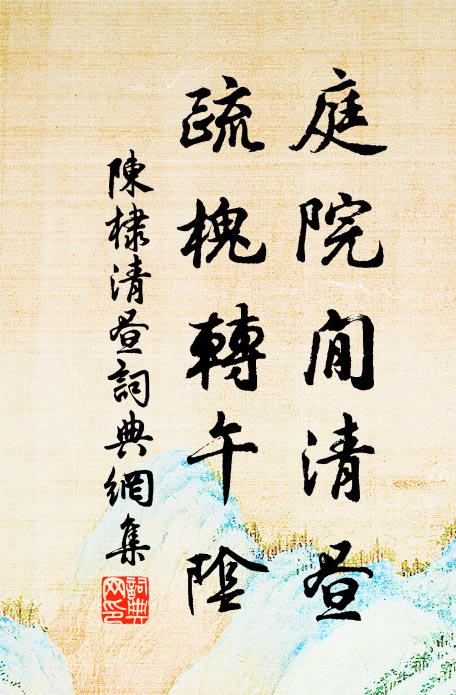 庭院閒清昼
疏槐轉午陰
陳棣清昼詞典網集
詞典网印